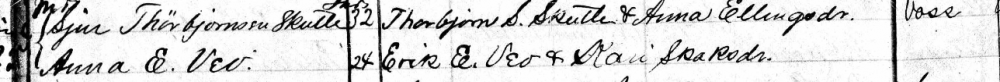 Sjur Thorbjornsen Skutle 32 Thorbjorn S. Skutle & Anna Ellingsdr. Voss
Anna E. Veo. 24 Erik E. Veo & Kari Skaksdr.